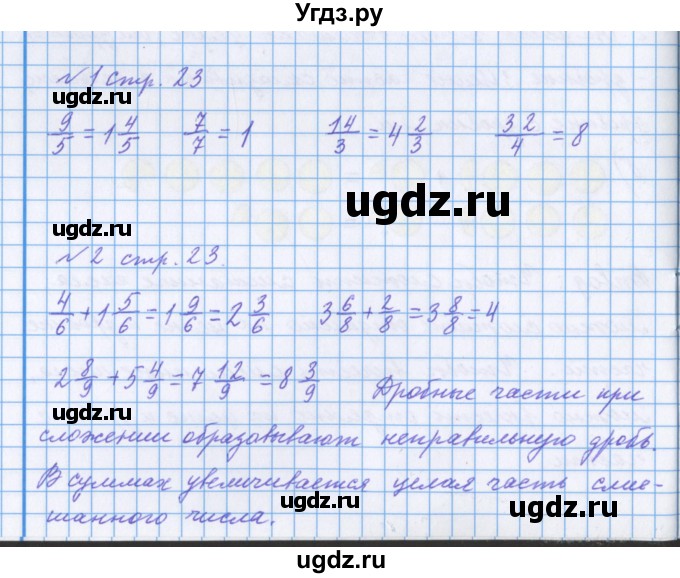 Угдз.ру
№1 стр. 23
ugdz.ru ugdz.ru
9/5 = 1 4/5 7/7 = 1 14/3 = 4 2/3 32/4 = 8
ugdz.ru
ugdz.ru
№2 стр. 23.
4/6 + 1 5/6 = 1 9/6 = 2 3/6 3 6/8 + 2/8 = 3 8/8 = 4
ugdz.ru ugdz.ru
2 8/9 + 5 4/9 = 7 12/9 = 8 3/9 Дробные части при
сложении образовывают неправильную дробь.
В суммах увеличивается целая часть сме-
ugdz.ru ugdz.ru
шанного числа.
ugdz.ru